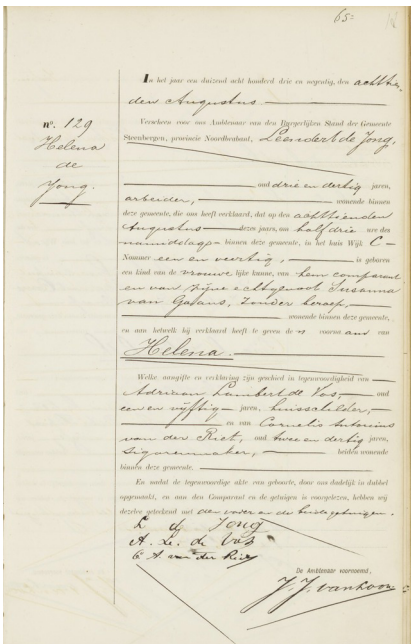 65
In het jaar een duizend acht honderd drie en negentig, den achttien
den Augustus
nº. 129
Helena
de
Jong.
Verscheen voor ons Ambtenaar van den Burgerlijken Stand der Gemeente
Steenbergen, provincie Noordbrabant, Leendert de Jong,
oud drie en dertig jaren,
arbeider, wonende binnen
deze gemeente, die ons heeft verklaard, dat op den achttienden
Augustus dezes jaars, om half drie ure des
namiddags binnen deze gemeente, in het huis Wijk C
Nommer een en veertig, is geboren
een kind van de vrouwelijke kunne, van hem comparant
en van zijne echtgenoot Susanna
van Gaans, zonder beroep,
wonende binnen deze gemeente,
en aan hetwelk hij verklaard heeft te geven den voornaam van
Helena.
Welke aangifte en verklaring zijn geschied in tegenwoordigheid van
Adriaan Lambert de Vos, oud
een en vijftig jaren, huisschilder,
en van Cornelis Antonius
van der Riet, oud twee en dertig jaren,
sigarenmaker, beiden wonende
binnen deze gemeente.
En omdat de tegenwoordige akte van geboorte, door ons dadelijk in dubbel
opgemaakt, en aan den Comparant en de getuigen is voorgelezen, hebben wij
dezelve geteekend met den vader en de beide getuigen.
L de Jong
A. L. de Vos
C A van der Riet
De Ambtenaar voornoemd,